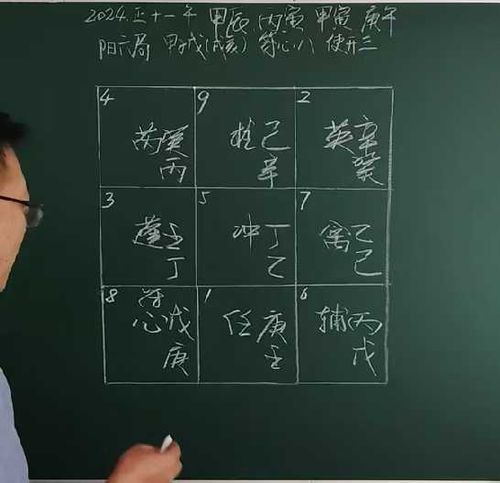 2024.正十一午 甲辰 丙寅 甲寅 庚午
阳六局 甲子戊(戌亥) 符心八 使开三
4 9 2
芮癸 柱己 英辛
丙 辛 癸
3 5 7
蓬壬 冲丁 禽乙
丁 乙 己
8 符 1 6
心戊 任庚 辅丙
庚 壬 戊